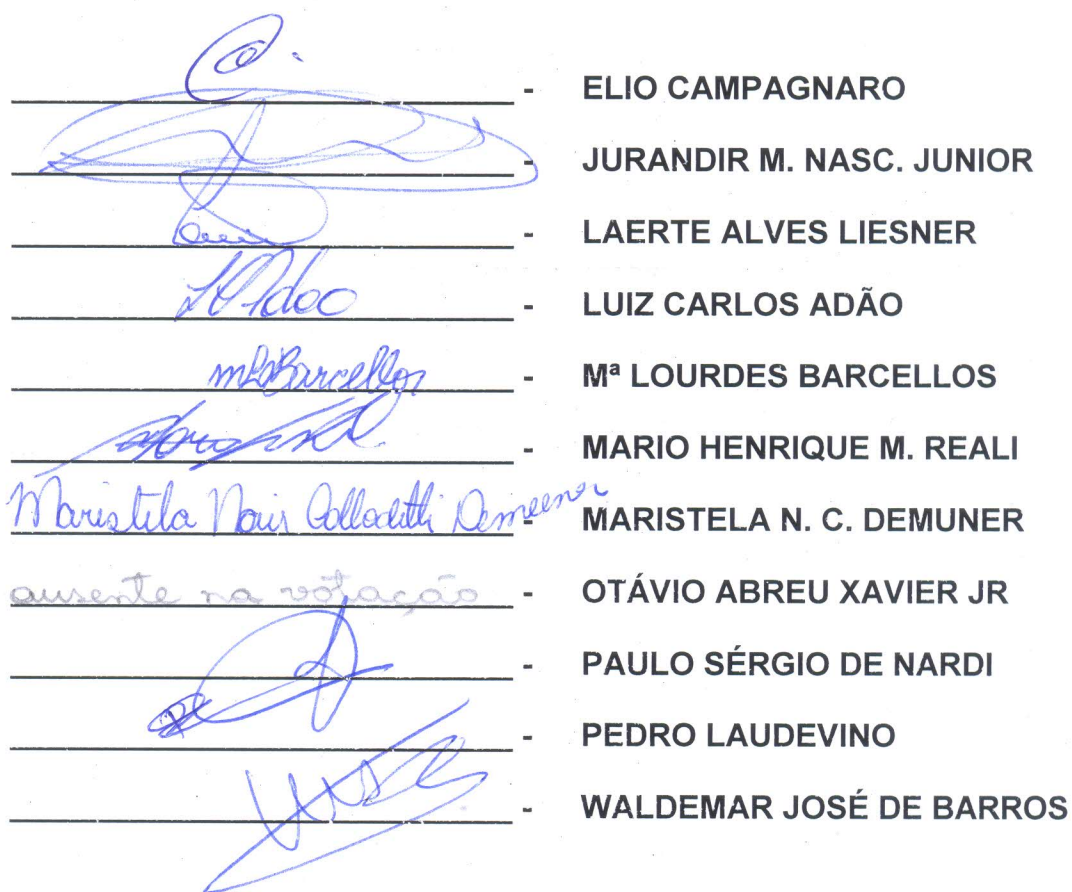 - ELIO CAMPAGNARO
- JURANDIR M. NASC. JUNIOR
- LAERTE ALVES LIESNER
- LUIZ CARLOS ADÃO
mLBarcellos - Mª LOURDES BARCELLOS
- MARIO HENRIQUE M. REALI
Maristela Nair Demuner - MARISTELA N. C. DEMUNER
ausente na votação - OTÁVIO ABREU XAVIER JR
- PAULO SÉRGIO DE NARDI
- PEDRO LAUDEVINO
- WALDEMAR JOSÉ DE BARROS